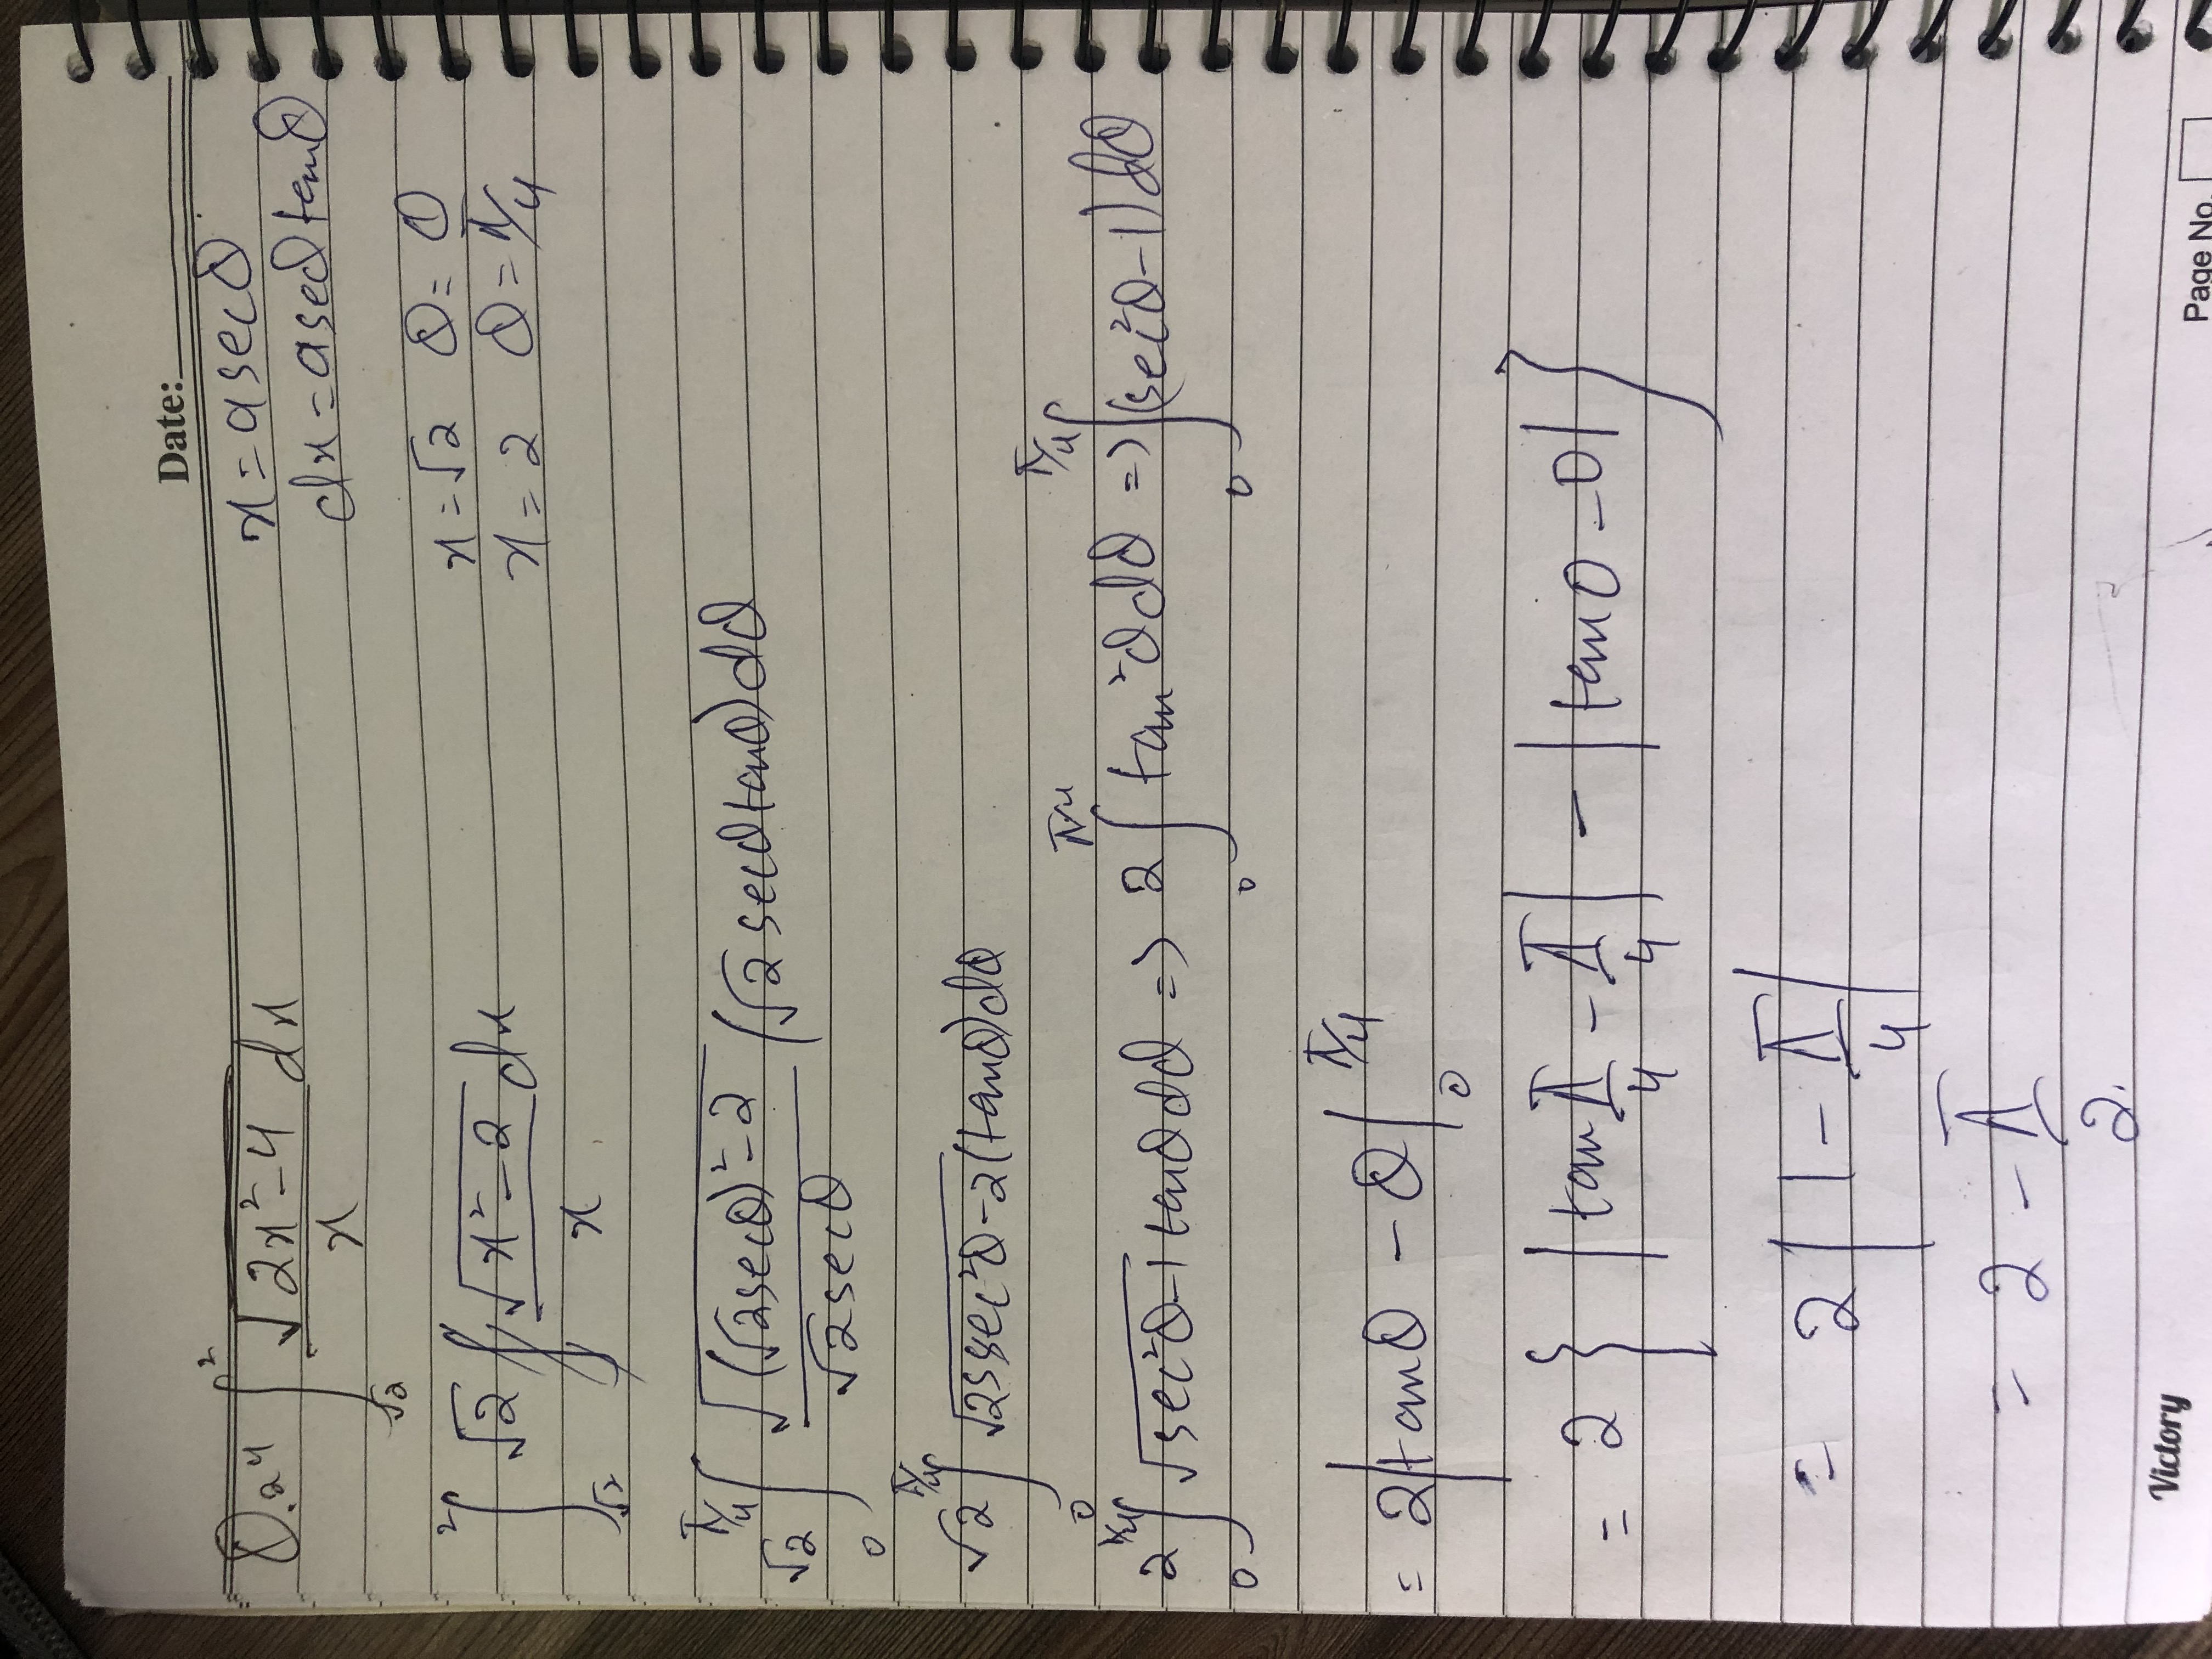 Date:
Q.24 ∫_{√2}^{2} √(2x²-4)/x dx
x = a secθ
dx = a secθ tanθ
∫_{√2}^{2} √2 √(x²-2)/x dx
x = √2 θ = 0
x = 2 θ = π/4
√2 ∫_{0}^{π/4} √((√2secθ)²-2)/(√2secθ) (√2 secθtanθ)dθ
√2 ∫_{0}^{π/4} √(2sec²θ-2) (tanθ)dθ
2 ∫_{0}^{π/4} √(sec²θ-1) tanθ dθ => 2 ∫_{0}^{π/4} tan²θ dθ => ∫_{0}^{π/4} (sec²θ-1) dθ
= 2|tanθ - θ|_{0}^{π/4}
= 2 { |tan π/4 - π/4| - |tan0 - 0| }
= 2 | 1 - π/4 |
= 2 - π/2.
Victory
Page No.